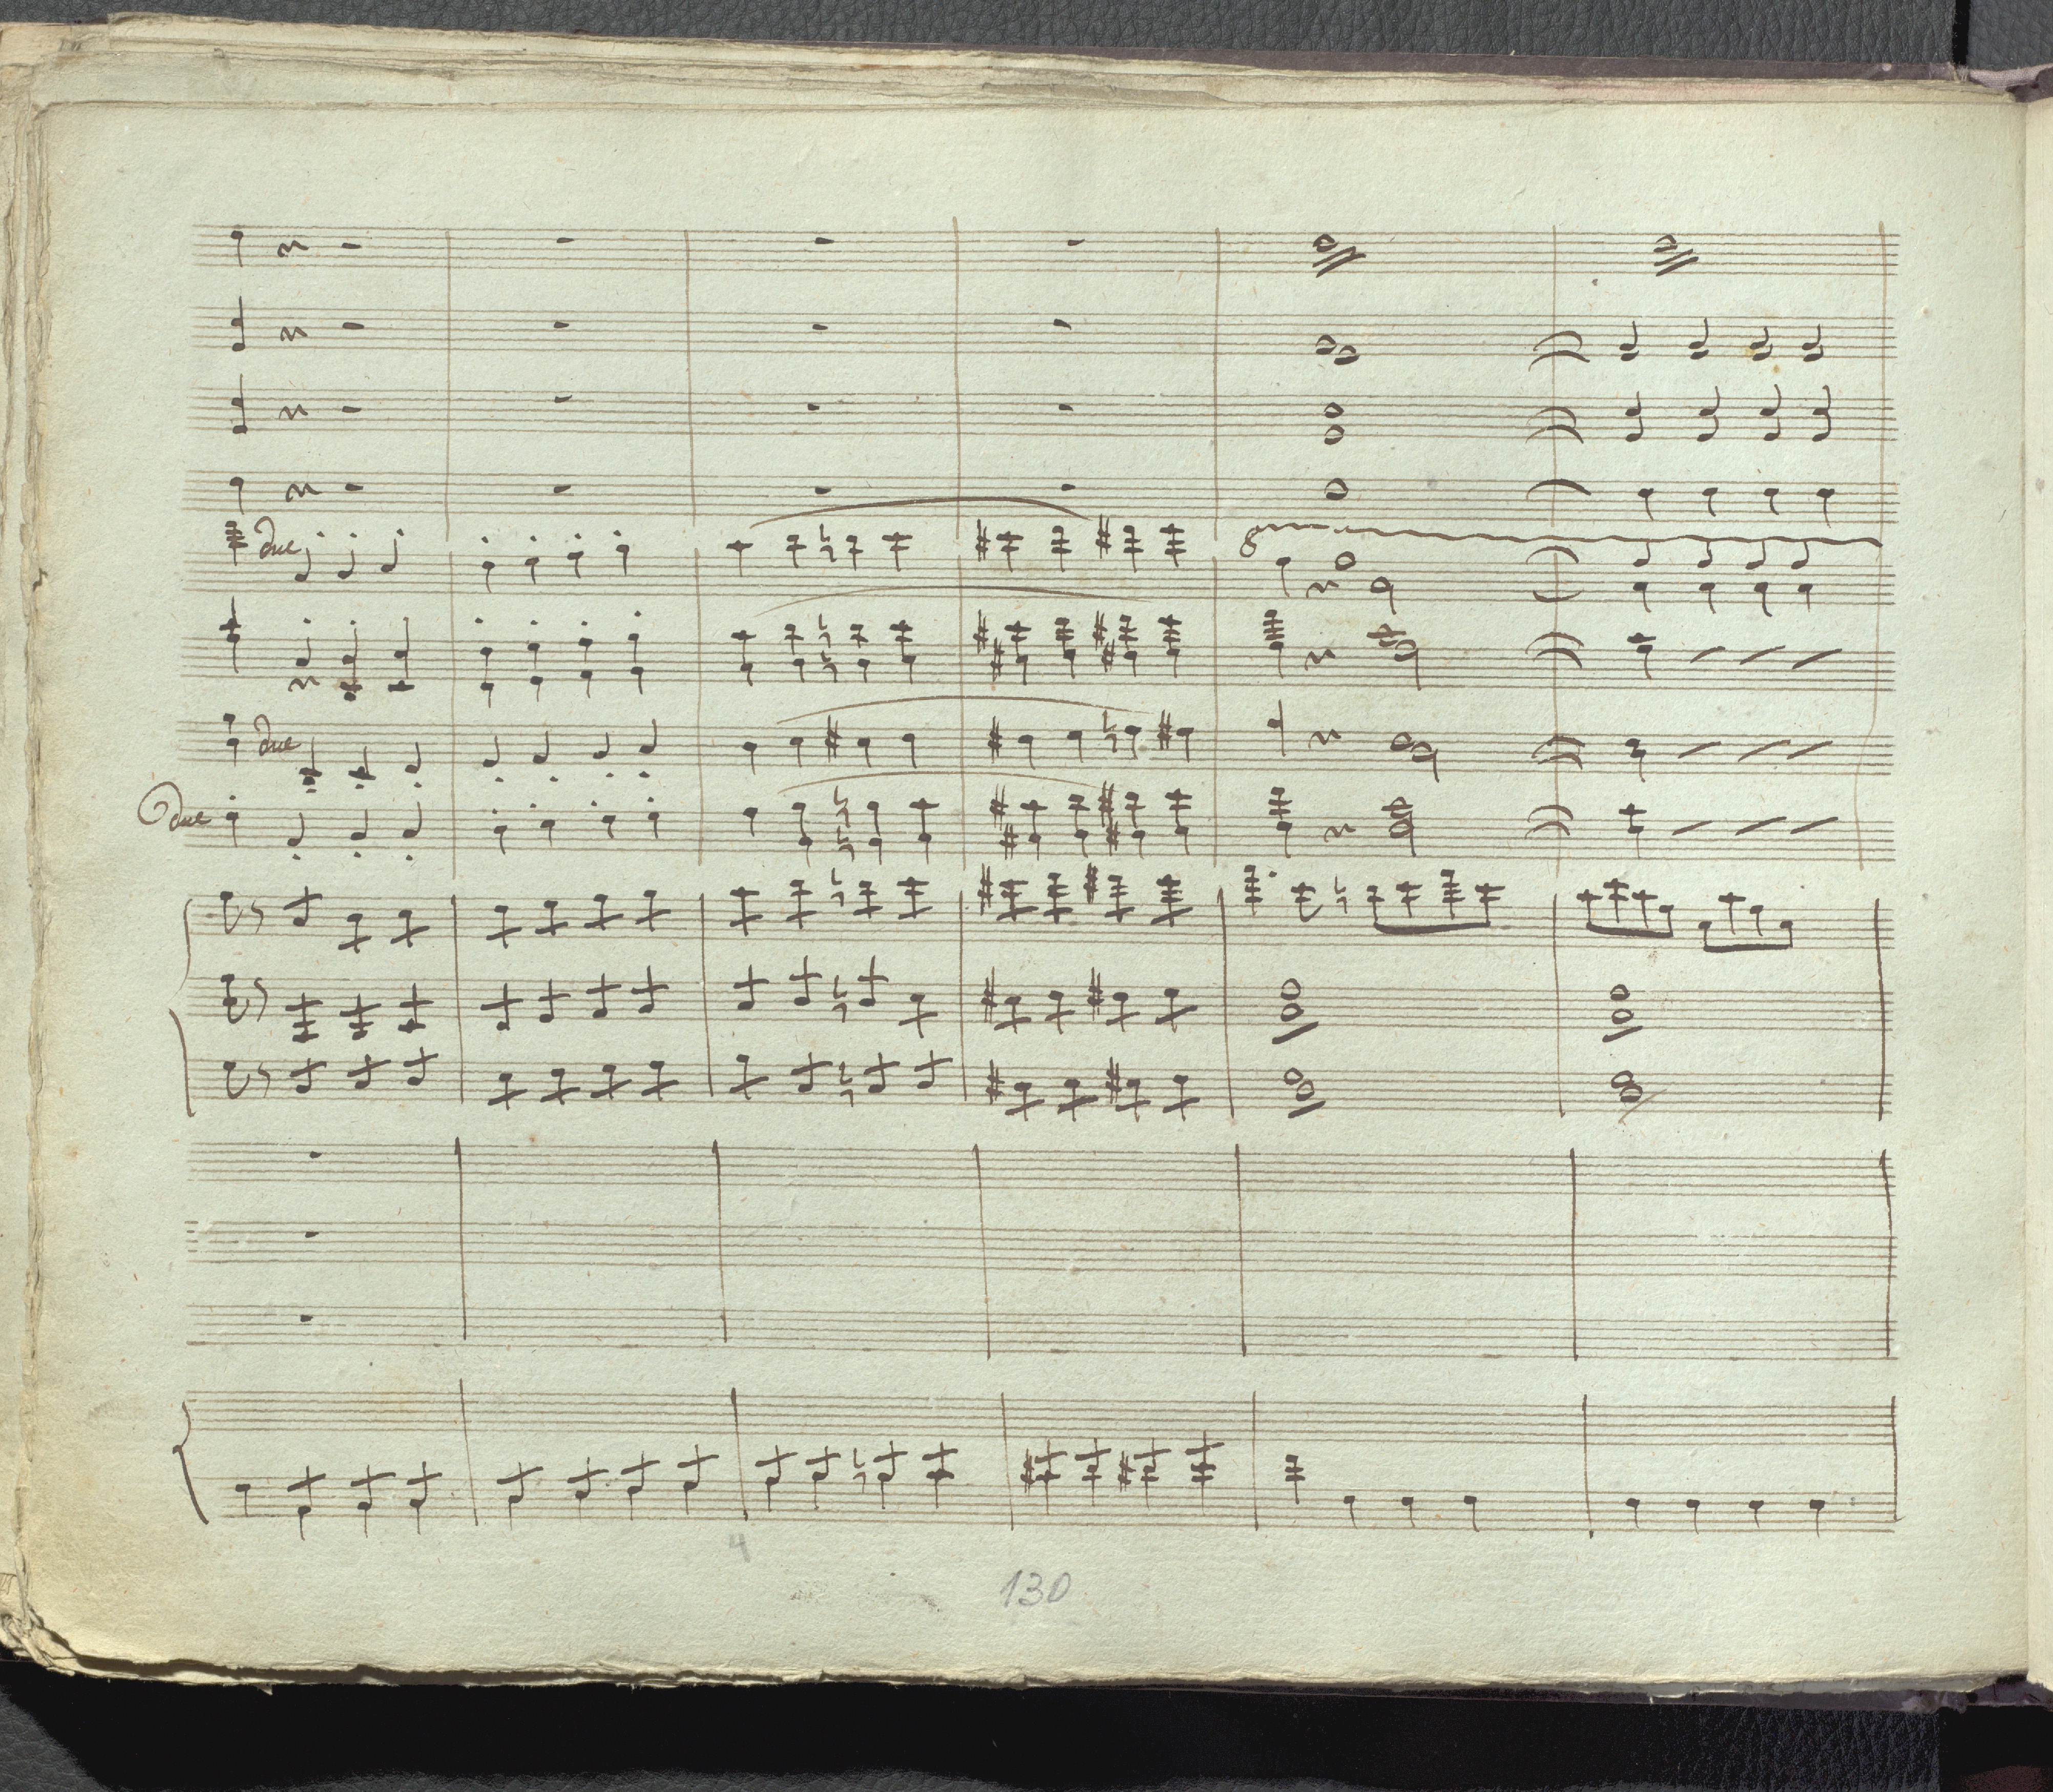 due
8
due
due
4
130